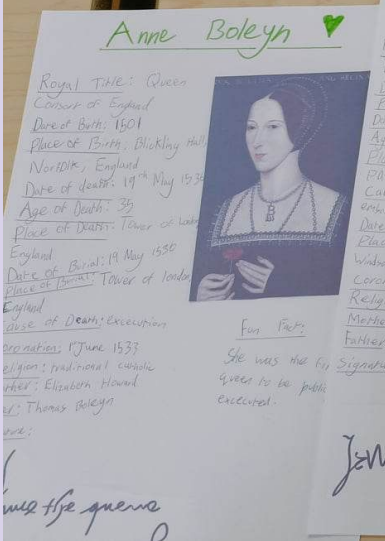 Anne Boleyn
Royal Title: Queen
Consort of England
Date of Birth: 1501
Place of Birth: Blickling Hall,
Norfolk, England
Date of death: 19th May 1536
Age of Death: 35
Place of Death: Tower of London
England
Date of Burial: 19 May 1536
Place of Burial: Tower of London
England
ause of Death: Execution
oronation: 1 June 1533
eligion: traditional catholic
ther: Elizabeth Howard
Thomas Boleyn
Fun Fact:
She was the fir
queen to be publi
executed.
Date
Place
Windso
Coron
Relig
Mothe
Father
Signatu